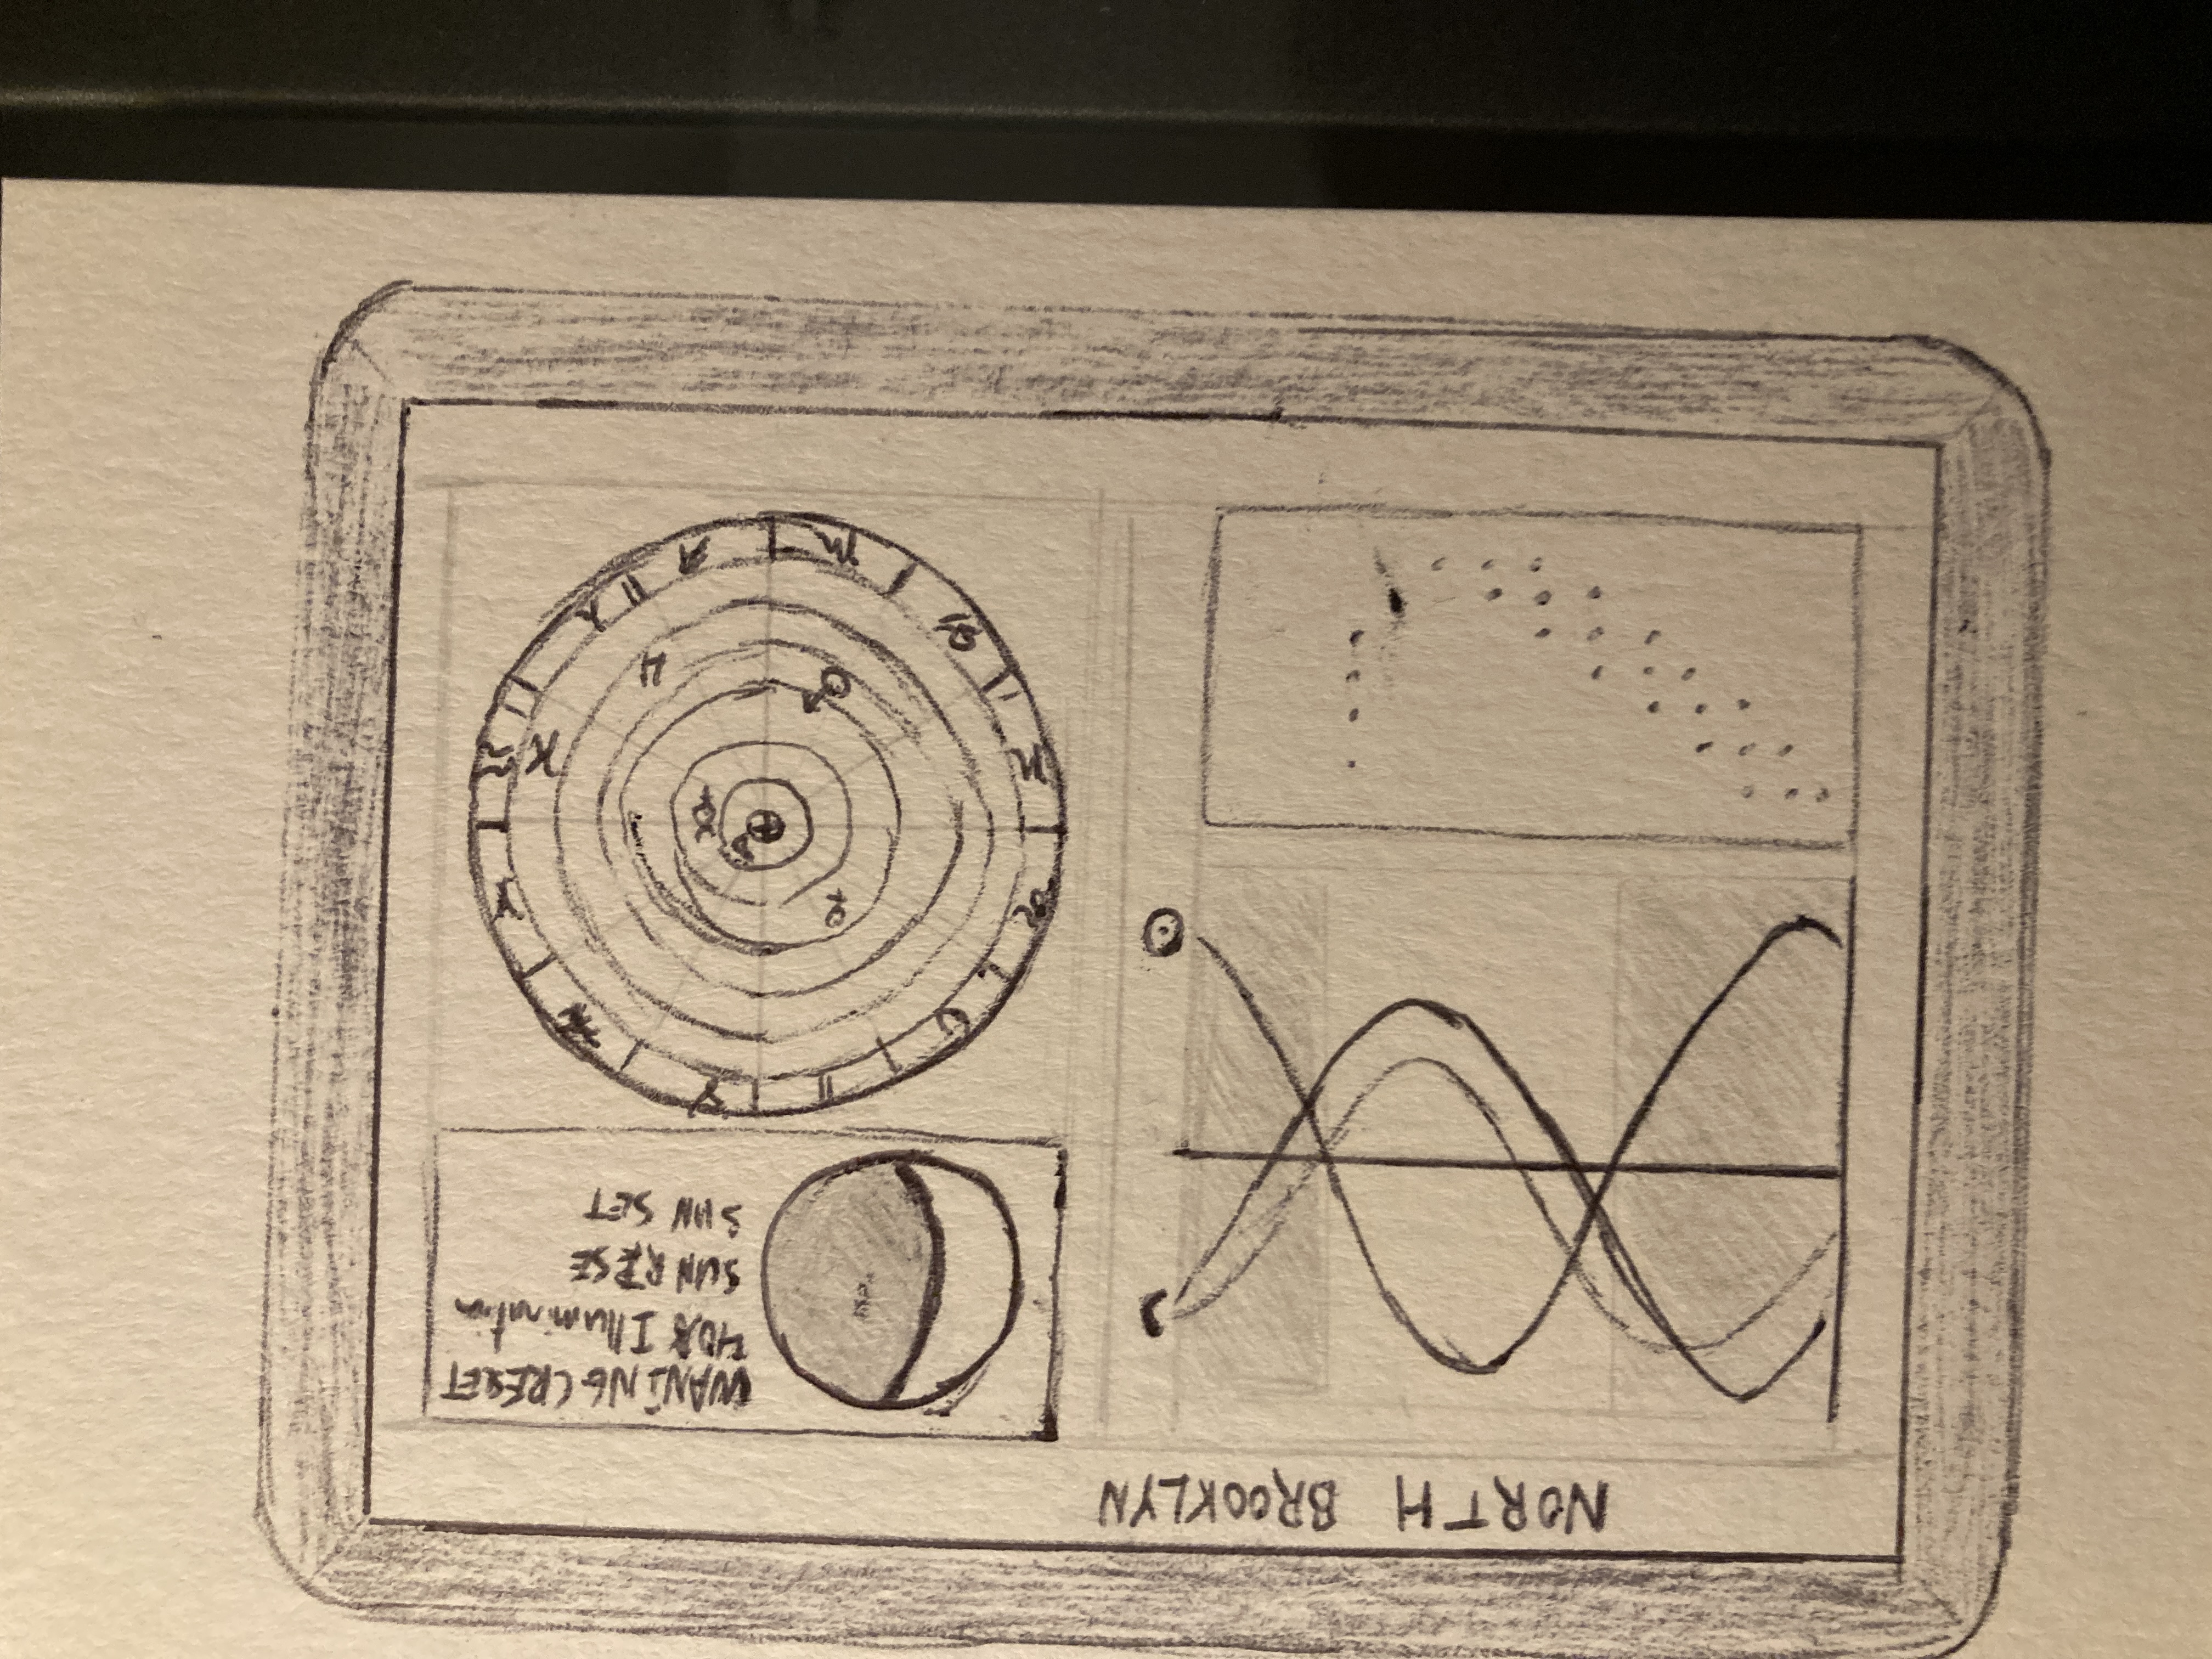 NORTH BROOKLYN
WANING CRESET
40% Illumination
SUN RISE
SUN SET